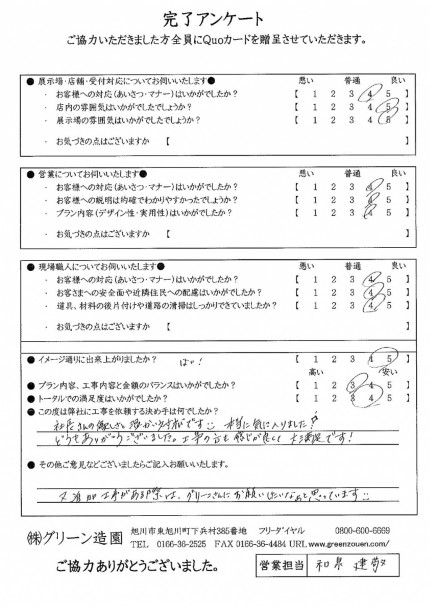 完了アンケート
ご協力いただきました方全員にQuoカードを贈呈させていただきます。
● 展示場・店舗・受付対応についてお伺いいたします● 悪い 普通 良い
・ お客様への対応(あいさつ・マナー)はいかがでしたか? 【 1 2 3 4 5 】
・ 店内の雰囲気はいかがでしたでしょうか? 【 1 2 3 4 5 】
・ 展示場の雰囲気はいかがでしたでしょうか? 【 1 2 3 4 5 】
・ お気づきの点はございますか 【 】
● 営業についてお伺いいたします● 悪い 普通 良い
・ お客様への対応(あいさつ・マナー)はいかがでしたか? 【 1 2 3 4 5 】
・ お客様への説明は的確でわかりやすかったでしょうか? 【 1 2 3 4 5 】
・ プラン内容(デザイン性・実用性)はいかがでしたか? 【 1 2 3 4 5 】
・ お気づきの点はございますか 【 】
● 現場職人についてお伺いいたします● 悪い 普通 良い
・ お客様への対応(あいさつ・マナー)はいかがでしたか? 【 1 2 3 4 5 】
・ お客さまへの安全面や近隣住民への配慮はいかがでしたか? 【 1 2 3 4 5 】
・ 道具、材料の後片付けや道路の清掃はしっかりできていましたか? 【 1 2 3 4 5 】
・ お気づきの点はございますか 【 】
● イメージ通りに出来上がりましたか? はい! 【 1 2 3 4 5 】
高い 安い
● プラン内容、工事内容と金額のバランスはいかがでしたか? 【 1 2 3 4 5 】
● トータルでの満足度はいかがでしたか? 【 1 2 3 4 5 】
● この度は弊社に工事を依頼する決め手は何でしたか?
社長さんの です 本当に気に入りました!
どうもありがとうございました。工事の方も感じが良くて大満足です!
● その他ご意見などございましたらご記入お願いいたします。
又追加工事がある際は、グリーンさんにお願いしたいなあと思っています
㈱グリーン造園 旭川市東旭川町下兵村385番地 フリーダイヤル 0800-600-6669
TEL 0166-36-2525 FAX 0166-36-4484 URL www.greenzouen.com/
ご協力ありがとうございました。 営業担当 和泉 建